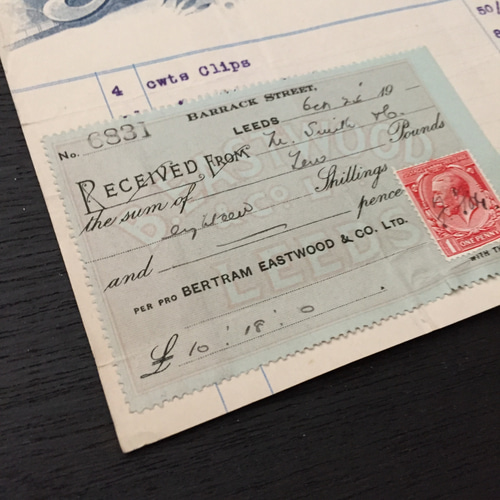 50/
8
4 cwts Clips
BARRACK STREET,
No. 6831 LEEDS 19
RECEIVED FROM Smith
the sum of Ten Pounds
eighteen Shillings
and pence
PER PRO BERTRAM EASTWOOD & CO. LTD.
£ 10 : 18 : 0
WITH T
1 ONE PENNY
EASTWOOD
& CO. L
LEEDS